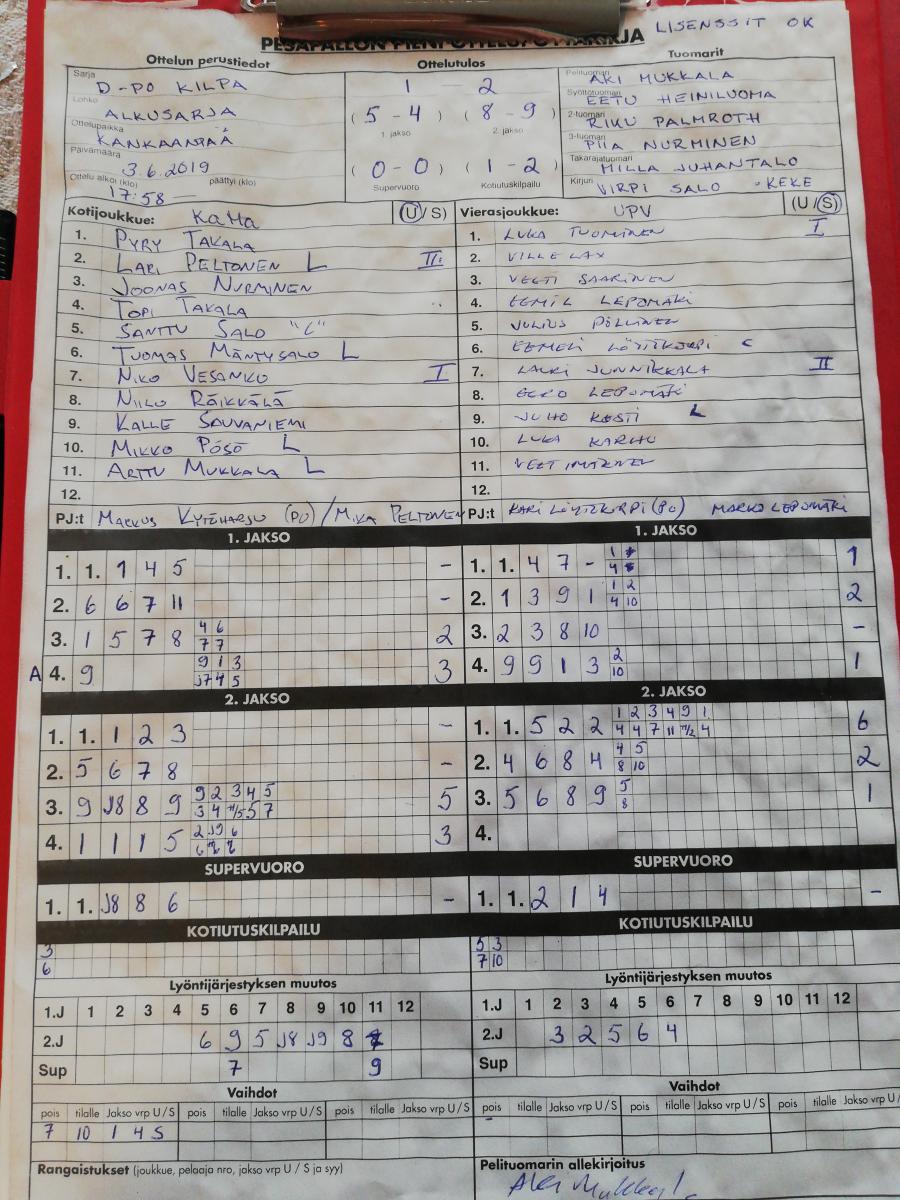 LISENSSIT OK
PESÄPALLON PIENI OTTELUPÖYTÄKIRJA
Ottelun perustiedot Ottelutulos Tuomarit
Sarja D-PO KILPA
Lohko ALKUSARJA
Ottelupaikka KANKAANPÄÄ
Päivämäärä 3.6.2019
Ottelu alkoi (klo) päättyi (klo)
17:58 —
1 - 2
(5-4) (8-9)
1. jakso 2. jakso
(0-0) (1-2)
Supervuoro Kotiutuskilpailu
Pelituomari AKI MUKKALA
Syöttötuomari EETU HEINILUOMA
2-tuomari RIKU PALMROTH
3-tuomari PIIA NURMINEN
Takarajatuomari MILLA JUHANTALO
Kirjuri VIRPI SALO - KEKE
Kotijoukkue: KaMa (U/S)
1. PYRY TAKALA
2. LARI PELTONEN L II
3. JOONAS NURMINEN
4. TOPI TAKALA
5. SANTTU SALO "C"
6. TUOMAS MÄNTYSALO L
7. NIKO VESANKO I
8. NIILO RÄIKKÄLÄ
9. KALLE SAUVANIEMI
10. MIKKO PÖSÖ L
11. ARTTU MUKKALA L
12.
PJ:t MARKUS KYTÖHARJU (PO) / MIKA PELTONEN
Vierasjoukkue: UPV (U/S)
1. LUKA TUOMINEN I
2. VILLE LAX
3. VELI SAARINEN
4. EEMIL LEPOMÄKI
5. JULIUS PÖLLINEN
6. EEMELI LÖYTÖKORPI C
7. LAURI JUNNIKKALA II
8. EERO LEPOMÄKI
9. JUHO KOSTI L
10. LUKA KARHU
11.
12.
PJ:t KARI LÖYTÖKORPI (PO) MARKO LEPOMÄKI
1. JAKSO
1. 1. 1 4 5 -
2. 6 6 7 11 -
3. 1 5 7 8 4 6 2
7 7
A 4. 9 9 1 3 3
J7 4 5
1. JAKSO
1. 1. 4 7 - 1 1
4
2. 1 3 9 1 1 2 2
4 10
3. 2 3 8 10 -
4. 9 9 1 3 2 1
10
2. JAKSO
1. 1. 1 2 3 -
2. 5 6 7 8 -
3. 9 J8 8 9 9 2 3 4 5 5
3 4 11/5 5 7
4. 1 1 1 5 2 J9 6 3
6
2. JAKSO
1. 1. 5 2 2 1 2 3 4 9 1 6
4 4 7 11 4
2. 4 6 8 4 4 5 2
8 10
3. 5 6 8 9 5 1
8
4.
SUPERVUORO
1. 1. J8 8 6 -
SUPERVUORO
1. 1. 2 1 4 -
KOTIUTUSKILPAILU
3
6
KOTIUTUSKILPAILU
5 3
7 10
Lyöntijärjestyksen muutos
1.J 1 2 3 4 5 6 7 8 9 10 11 12
2.J 6 9 5 J8 J9 8
Sup 7 9
Lyöntijärjestyksen muutos
1.J 1 2 3 4 5 6 7 8 9 10 11 12
2.J 3 2 5 6 4
Sup
Vaihdot
pois tilalle Jakso vrp U/S pois tilalle Jakso vrp U/S pois tilalle Jakso vrp U/S
7 10 1 4 S
Vaihdot
pois tilalle Jakso vrp U/S pois tilalle Jakso vrp U/S pois tilalle Jakso vrp U/
-
Rangaistukset (joukkue, pelaaja nro, jakso vrp U / S ja syy)
Pelituomarin allekirjoitus